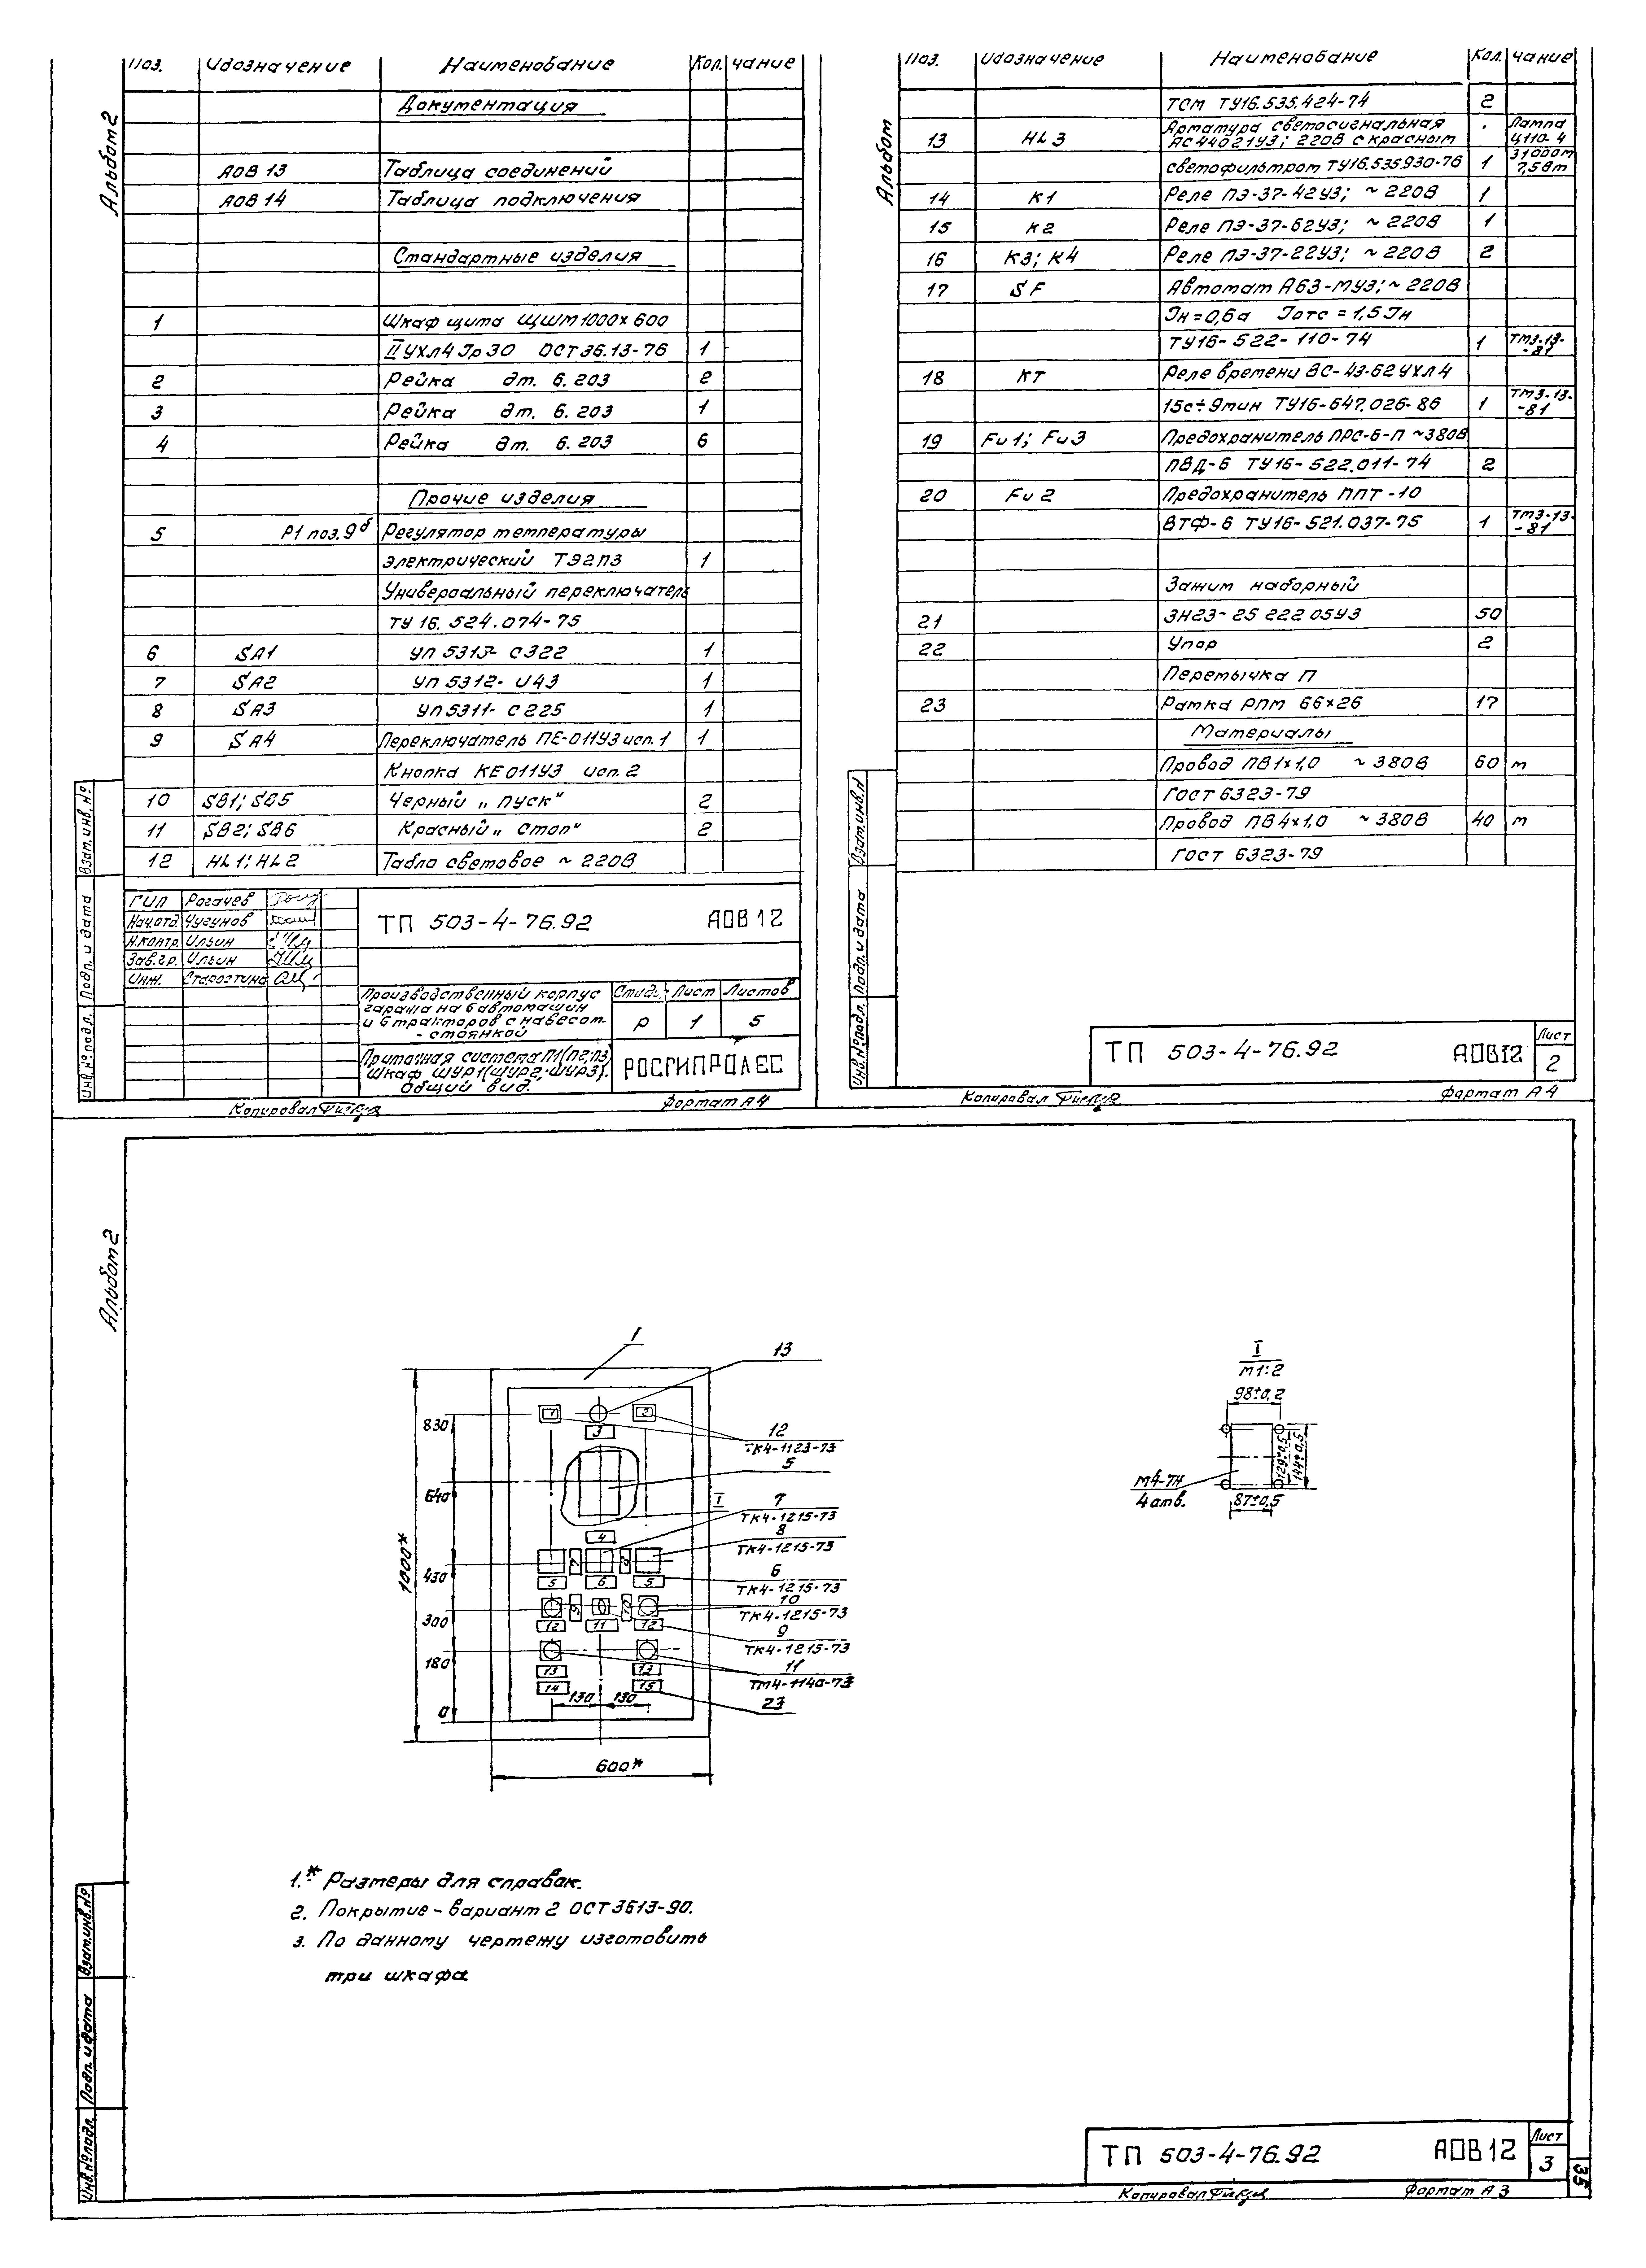 Альбом 2
Поз. Обозначение Наименование Кол. чание
Документация
АОВ 13 Таблица соединений
АОВ 14 Таблица подключения
Стандартные изделия
1 Шкаф щита ЩШМ 1000х600
II УХЛ4 Jp30 ОСТ 36.13-76 1
2 Рейка дт. 6.203 2
3 Рейка дт. 6.203 1
4 Рейка дт. 6.203 6
Прочие изделия
5 Р1 поз. 9б Регулятор температуры
электрический ТЭ2ПЗ 1
Универсальный переключатель
ТУ 16.524.074-75
6 SA1 УП 5313-С322 1
7 SA2 УП 5312-U43 1
8 SA3 УП 5311-С225 1
9 SA4 Переключатель ПЕ-011У3 исп. 1 1
Кнопка КЕ 011У3 исп. 2
10 SB1; SB5 Черный „Пуск" 2
11 SB2; SB6 Красный „Стоп" 2
12 HL1; HL2 Табло световое ~ 220В
ГИП Рогачев
Нач.отд. Чугунов
Н.контр. Ильин
Зав.гр. Ильин
Инж. Старостина
ТП 503-4-76.92 АОВ 12
Производственный корпус
гаража на 6 автомашин
и 6 тракторов с навесом-
-стоянкой
Стад. Лист Листов
Р 1 5
Приточная система П1(П2,П3)
Шкаф ШУР1(ШУР2, ШУР3).
Общий вид.
РОСГИПРОЛЕС
Взам. инв. №
Подп. и дата
Инв. № подл.
Копировал Формат А4
Альбом
Поз. Обозначение Наименование Кол. чание
ТСМ ТУ16.535.424-74 2
13 HL3 Арматура светосигнальная Лампа
АС44021У3; 220В с красным Ц110-4
светофильтром ТУ16.535.930-76 1
14 К1 Реле ПЭ-37-42У3; ~ 220В 1
15 К2 Реле ПЭ-37-62У3; ~ 220В 1
16 К3; К4 Реле ПЭ-37-22У3; ~ 220В 2
17 SF Автомат А63-МУ3; ~ 220В
Jн=0,6а Jотс = 1,5 Jн
ТУ16-522-110-74 1 ТМ3-13--81
18 КТ Реле времени ВС-43-62УХЛ4
15с÷9мин ТУ16-647.026-86 1 ТМ3-13--81
19 Fu1; Fu3 Предохранитель ПРС-6-П ~380В
ПВД-6 ТУ16-522.011-74 2
20 Fu2 Предохранитель ППТ-10
ВТФ-6 ТУ16-521.037-75 1 ТМ3-13--81
Зажим наборный
21 ЗН23-25 222 05У3 50
22 Упор 2
Перемычка П
23 Рамка РПМ 66х26 17
Материалы
Провод ПВ1х1,0 ~ 380В 60 м
ГОСТ 6323-79
Провод ПВ4х1,0 ~ 380В 40 м
ГОСТ 6323-79
Взам. инв. №
Подп. и дата
Инв. № подл.
ТП 503-4-76.92 АОВ12
Лист
2
Копировал Формат А4
Альбом 2
I
13
1
2
3
830
12
ТК4-1123-73
5
640
I
7
ТК4-1215-73
4
8
ТК4-1215-73
7
8
1000*
430
5
6
5
6
ТК4-1215-73
10
ТК4-1215-73
9
10
300
12
11
12
9
ТК4-1215-73
180
13
13
11
14
15
130
130
23
0
600*
I
М1:2
98±0,2
129±0,5
144±0,5
М4-7Н
4 отв.
87±0,5
1.* Размеры для справок.
2. Покрытие - вариант 2 ОСТ 3613-90.
3. По данному чертежу изготовить
три шкафа
Взам. инв. №
Подп. и дата
Инв. № подл.
ТП 503-4-76.92 АОВ 12
Лист
3
35
Копировал Формат А3